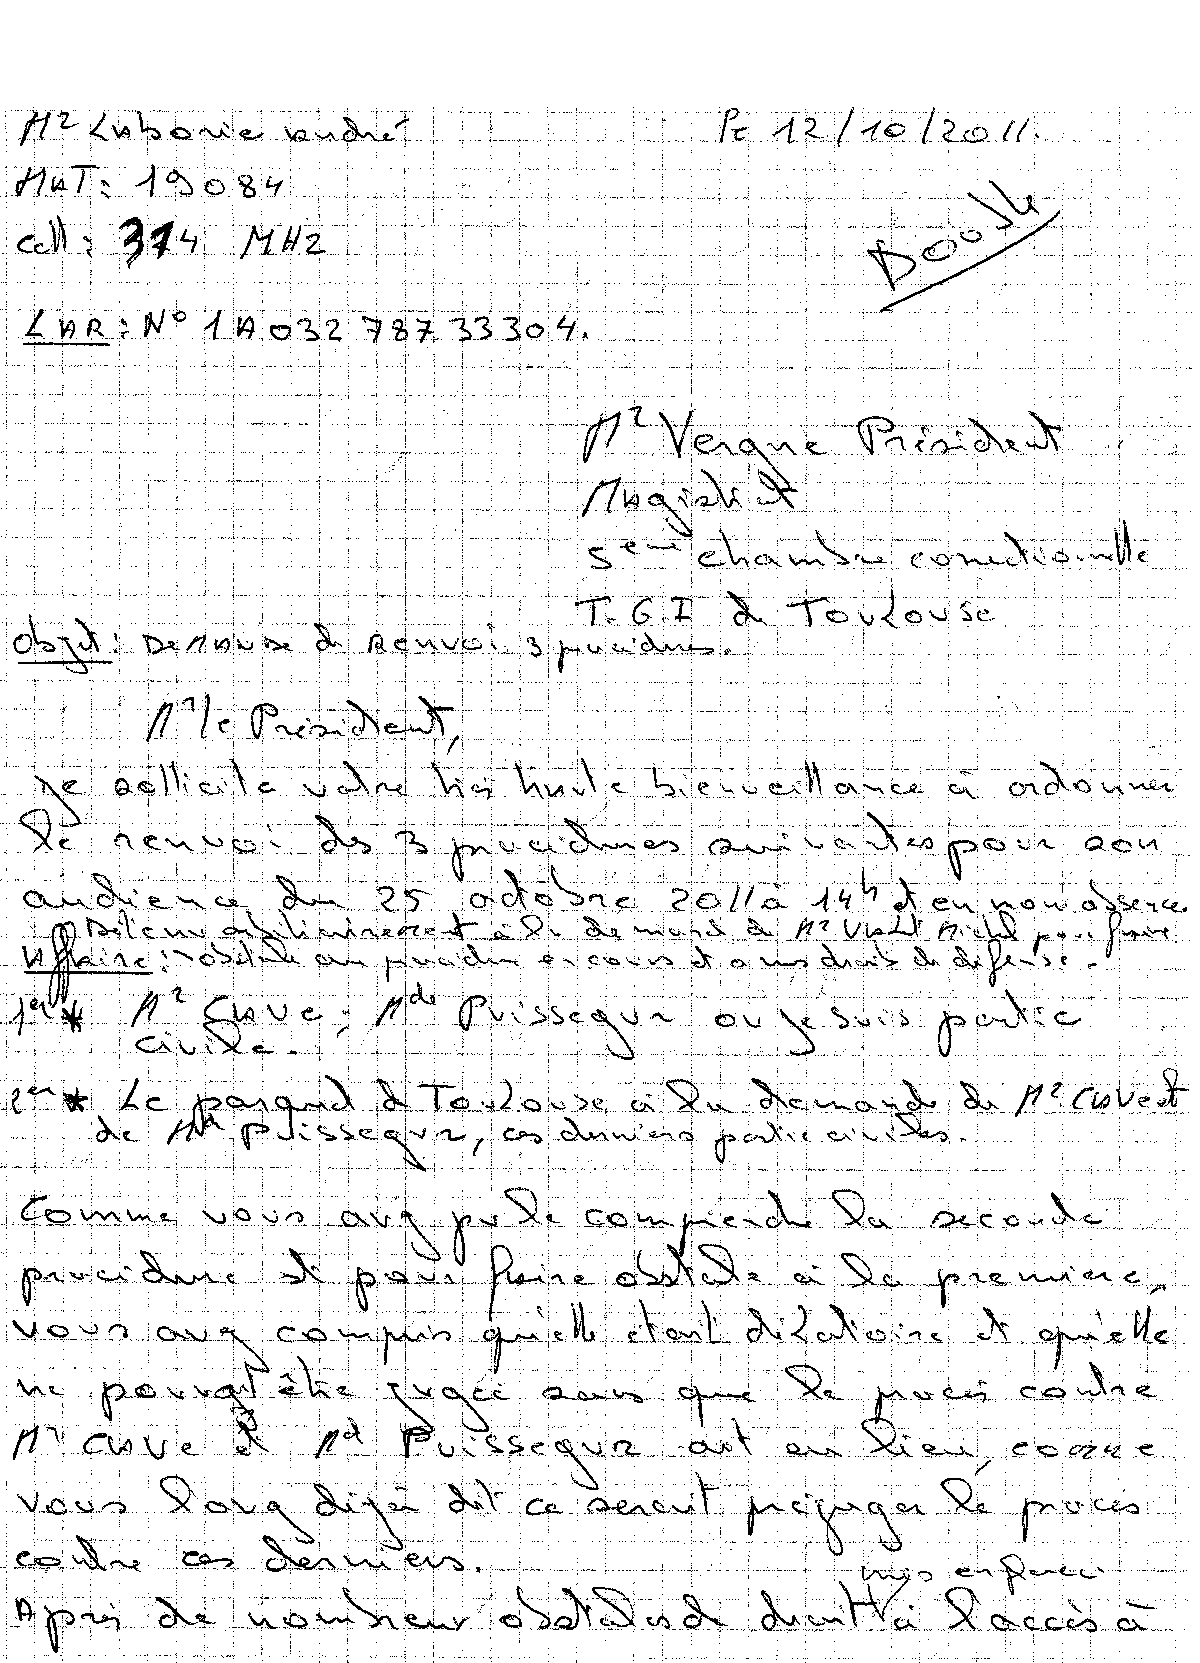 Mr Laborie André
Le 12/10/2011.
MAT: 19084
Cell: 374 MH2
Double
LAR: N° 1A 032 787 3330 4.
Mr Vergne Président
Magistrat
5eme chambre correctionnelle
T.G.I de Toulouse
Objet: Demande de Renvoi 3 procédures.
Mr le Président,
Je sollicite votre très haute bienveillance à ordonner
le renvoi des 3 procédures suivantes pour son
audience du 25 octobre 2011 à 14h et en mon absence.
Détenu arbitrairement à la demande de Mr Valet Michel pour faire
Affaire: obstacle aux procédures en cours et à mes droits de défense.
1er * Mr CAVE; Mde Puissegur ou je suis partie
civile.
2er * Le parquet de Toulouse à la demande de Mr CAVE et
de Puissegur, ces derniers partie civiles.
Comme vous avez pu le comprendre la seconde
procédure est pour faire obstacle à la première,
vous avez compris qu'elle étant dilatoire et qu'elle
ne pourrat être jugée sans que le procès contre
Mr CAVE et Md Puissegur ait eu lieu, comme
vous l'avez déjà dit ce serait préjuger le procès
contre ces derniers.
mis en place
Après de nombreux obstacles de droit à l'accès à